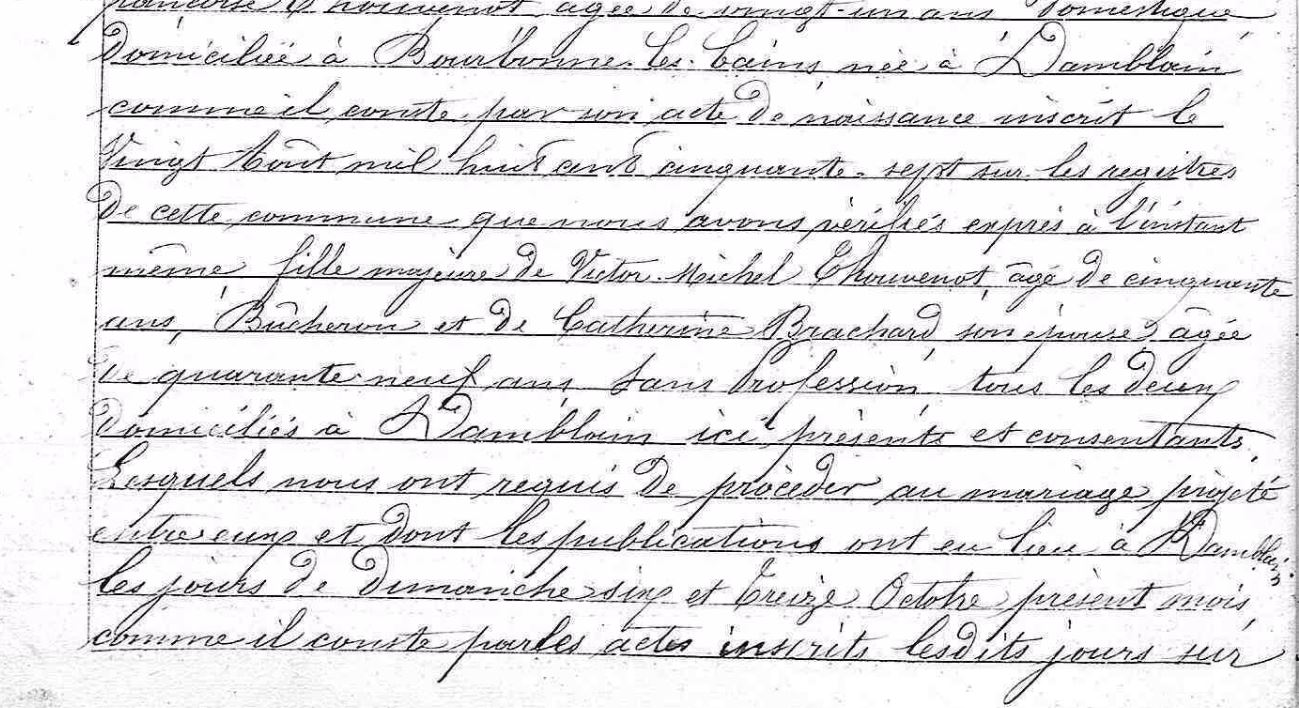 françoise Thouvenot âgée de vingt-un ans Domestique
Domiciliée à Bourbonne-les-bains née à Damblain
comme il conste par son acte de naissance inscrit le
Vingt Août mil huit cent cinquante-sept sur les registres
De cette commune que nous avons vérifiés exprès à l'instant
même, fille majeure de Victor-Michel Thouvenot, âgé de cinquante
ans, Bûcheron et de Catherine Brachard son épouse, âgée
de quarante-neuf ans Sans Profession tous les deux
Domiciliés à Damblain ici présents et consentants.
Lesquels nous ont requis de procéder au mariage projeté
entre eux et dont les publications ont eu lieu à Damblain
les jours de Dimanche six et Treize Octobre présent mois,
comme il conste par les actes inscrits lesdits jours sur